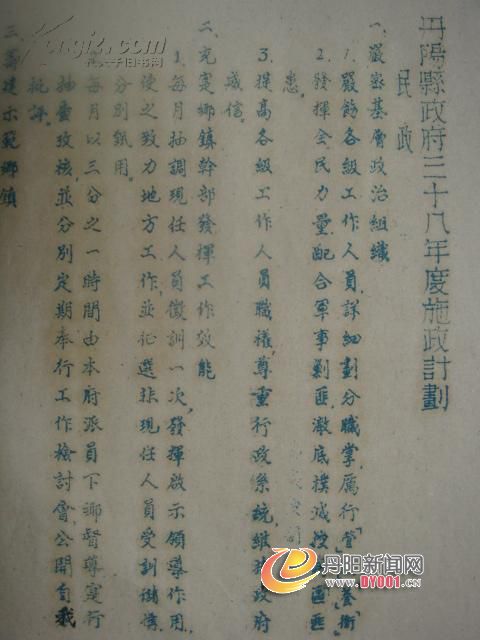 丹陽縣政府三十八年度施政計劃
民政
一、嚴密基層政治組織
1.嚴飭各級工作人員，詳細劃分職掌，厲行「管」「養」「衛」
2.發揮全民力量，配合軍事剿匪，澈底撲滅
患。
3.提高各級工作人員職權，尊重行政系統，維持政府
威信。
二、充實鄉鎮幹部發揮工作效能
1.每月抽調現任人員徵訓一次，發揮啟示領導作用，
使之致力地方工作，並征選非現任人員受訓儲備，
分別甄用。
每月以三分之一時間由本府派員下鄉督導實行
抽查攷核，並分別定期奉行工作檢討會，公開自我
批評。
三、籌建示範鄉鎮
丹阳新闻网
WWW.DY001.CN